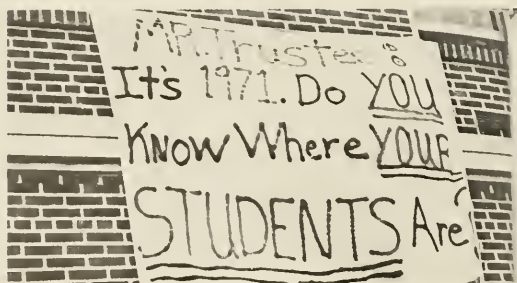 MR. Trustee:
It's 1971. Do YOU
Know Where YOUR
STUDENTS Are